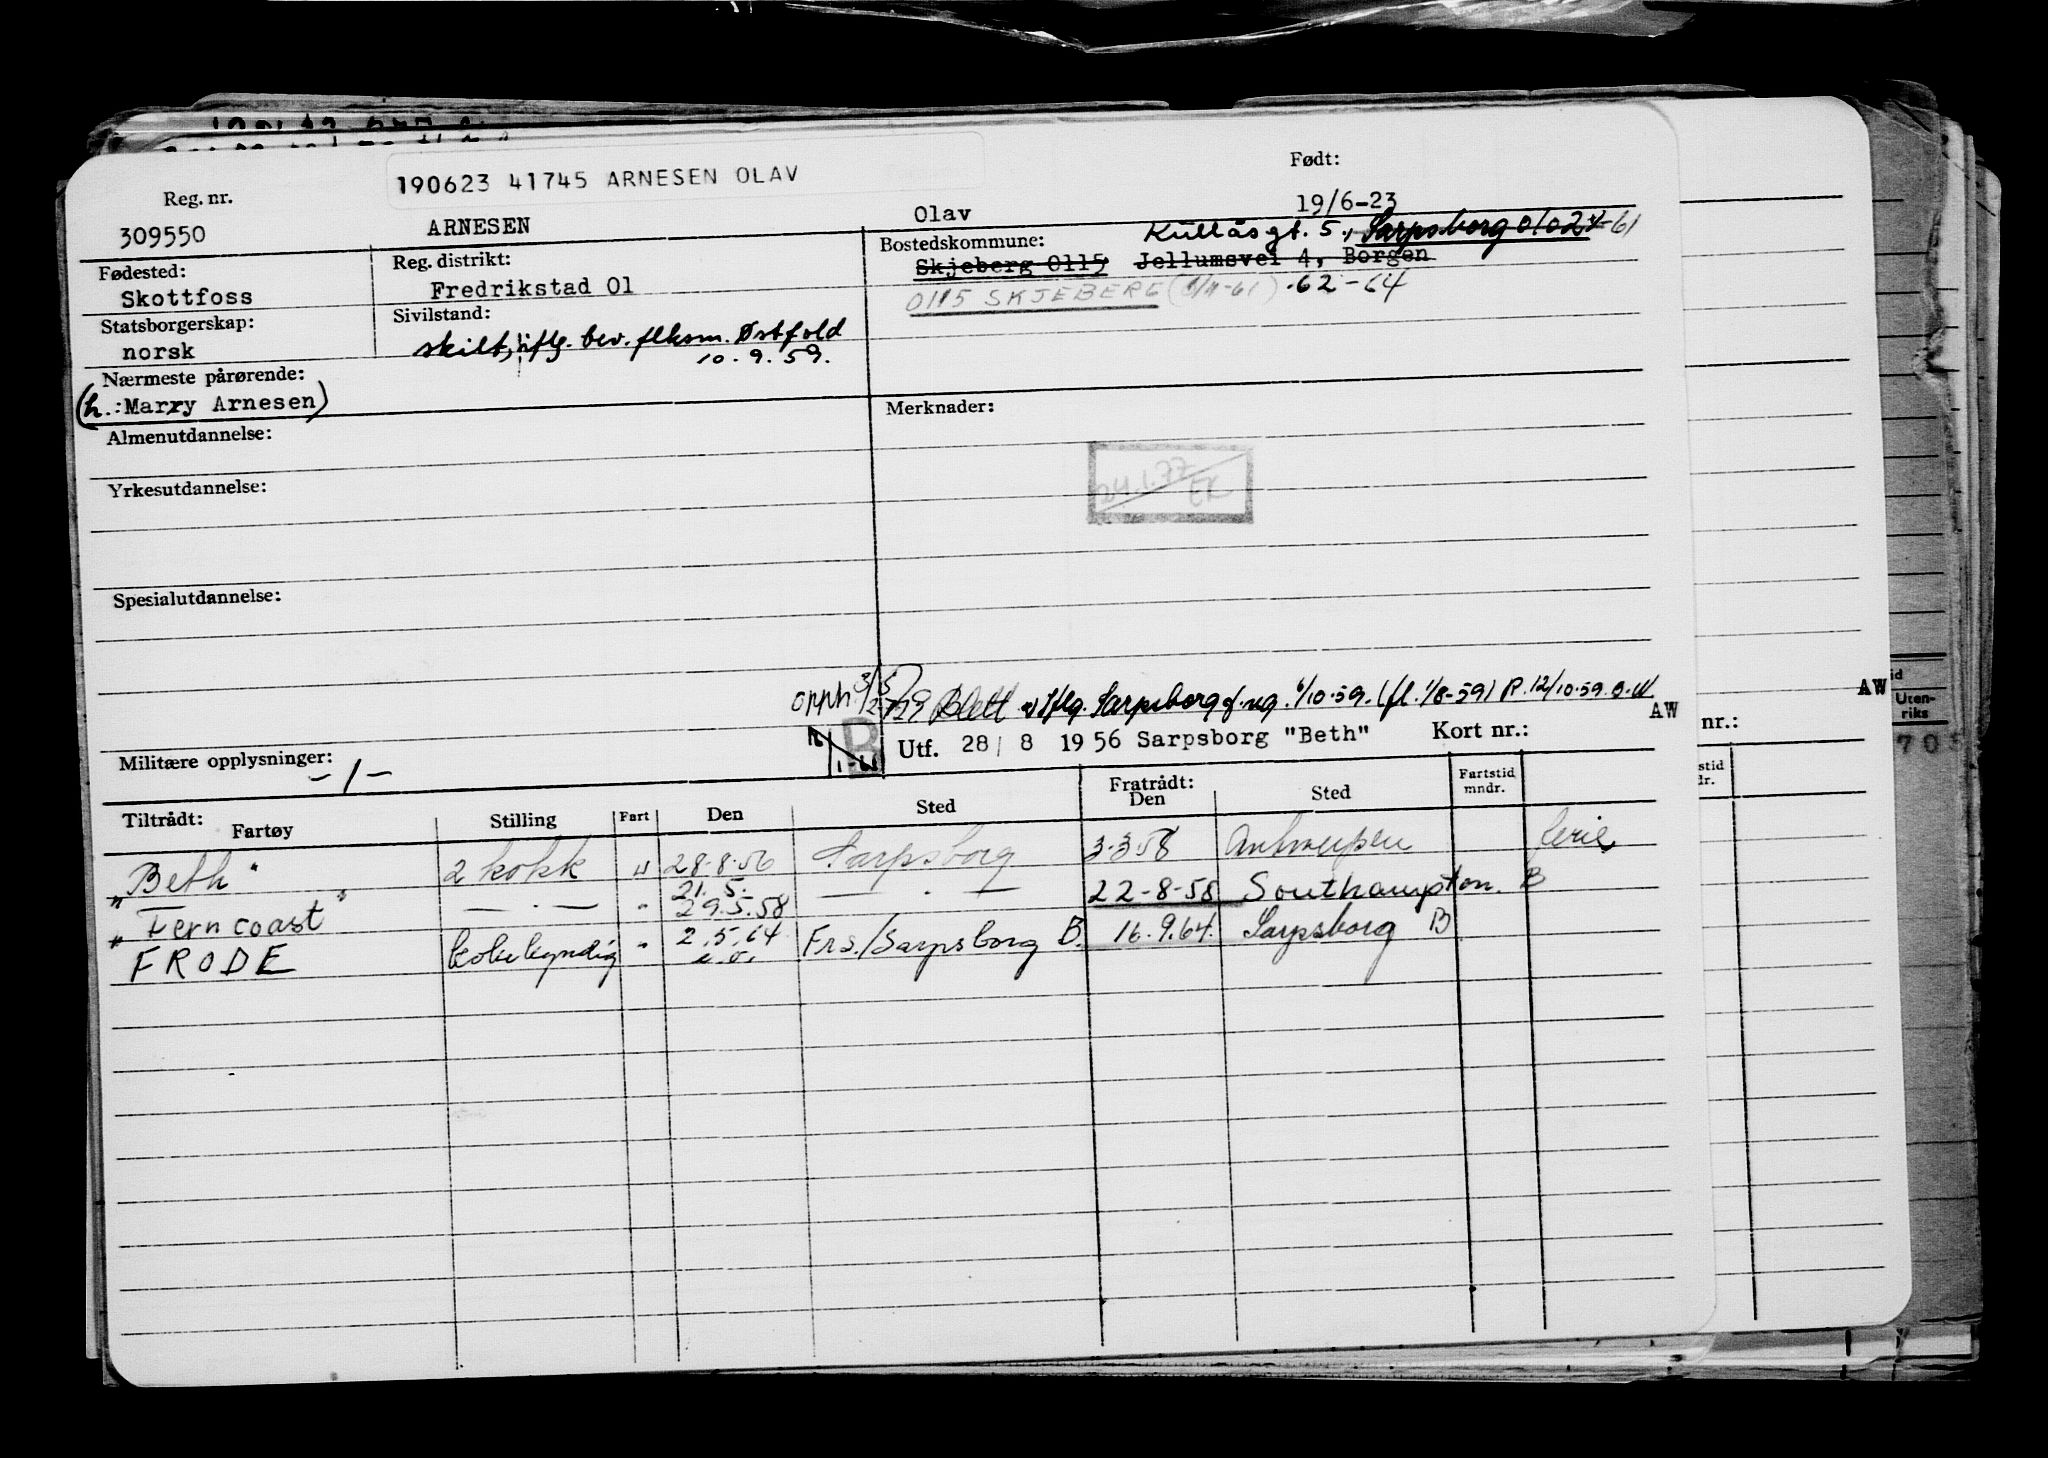 190623 41745 ARNESEN OLAV
Født:
Reg. nr.
309550 ARNESEN Olav 19/6-23
Fødested:
Skottfoss
Reg. distrikt:
Fredrikstad 01
Bostedskommune: Kullåsgt. 5., Sarpsborg 0102 -61
Skjeberg 0115 Jellumsvei 4, Borgen
0115 SKJEBERG (1/11-61) .62-64
Statsborgerskap:
norsk
Sivilstand:
skilt, iflg. bev. flksm. Østfold
10.9.59.
Nærmeste pårørende:
(h.:Marry Arnesen)
Almenutdannelse:
Merknader:
24.1.77 EK
Yrkesutdannelse:
Spesialutdannelse:
opph. Blett iflg. Sarpsborg 6/10-59. (fl. 1/8-59) P. 12/10-59
AW
AW
Militære opplysninger:
-1-
B Utf. 28/ 8 1956 Sarpsborg "Beth" Kort nr.:
nr.:
Tiltrådt:
Fartøy Stilling Fart Den Sted Fratrådt: Den Sted Fartstid mndr.
"Beth" 2 kokk u 28-8-56 Sarpsborg 3-3-58 Antwerpen ferie
"Ferncoast" — . — " 21.5. 29.5.58 — . — 22-8-58 Southampton. B
"FRODE kokekyndig " 2.5.64 Frs./Sarpsborg B. 16.9.64. Sarpsborg B
id
Uten-
riks
705
stid
dr.